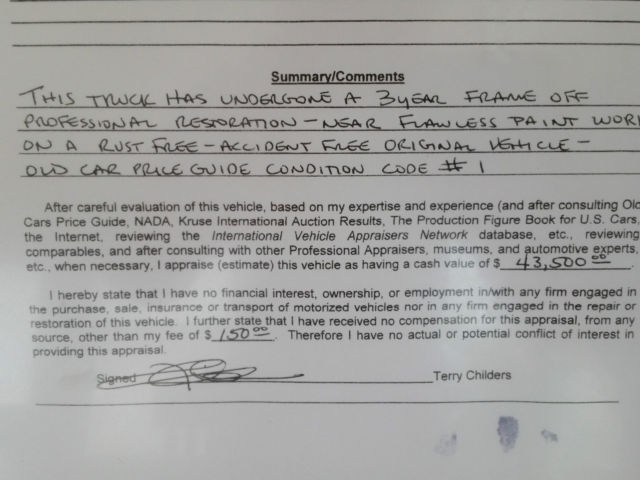 Summary/Comments
THIS TRUCK HAS UNDERGONE A 3 YEAR FRAME OFF
PROFESSIONAL RESTORATION - NEAR FLAWLESS PAINT WORK
ON A RUST FREE - ACCIDENT FREE ORIGINAL VEHICLE -
OLD CAR PRICE GUIDE CONDITION CODE # 1
After careful evaluation of this vehicle, based on my expertise and experience (and after consulting Old
Cars Price Guide, NADA, Kruse International Auction Results, The Production Figure Book for U.S. Cars,
the Internet, reviewing the International Vehicle Appraisers Network database, etc., reviewing
comparables, and after consulting with other Professional Appraisers, museums, and automotive experts,
etc., when necessary, I appraise (estimate) this vehicle as having a cash value of $ 43,500 00.
I hereby state that I have no financial interest, ownership, or employment in/with any firm engaged in
the purchase, sale, insurance or transport of motorized vehicles nor in any firm engaged in the repair or
restoration of this vehicle. I further state that I have received no compensation for this appraisal, from any
source, other than my fee of $ 150 00. Therefore I have no actual or potential conflict of interest in
providing this appraisal.
Signed Terry Childers